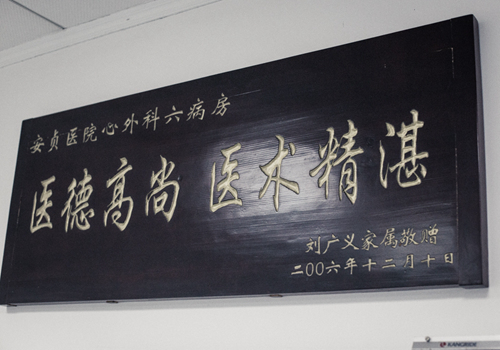 安贞医院心外科六病房
医德高尚 医术精湛
刘广义家属敬赠
二00六年十二月十日
KANGBIDE